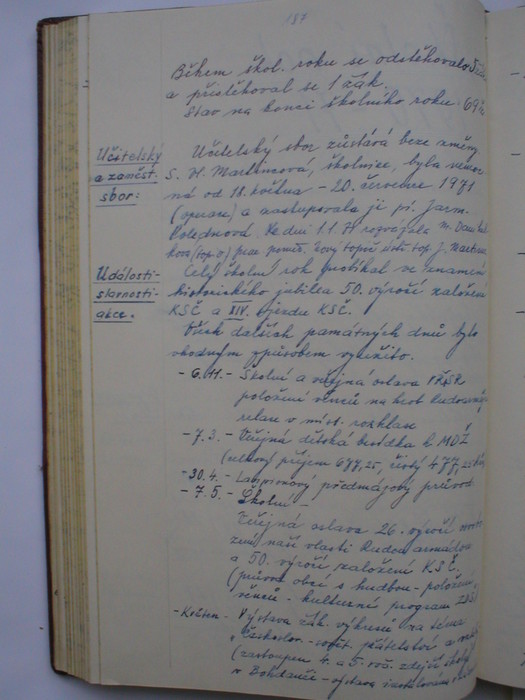 187
Během škol. roku se odstěhovalo
a přistěhoval se 1 žák.
Stav na konci školního roku: 69
Učitelský
a zaměst.
sbor:
Učitelský sbor zůstává beze změny
S. H. Martincová, školnice, byla nemoc-
ná od 18. května – 20. července 1971
(operace) a zastupovala ji pí. Jarm.
Polednová. Ke dni 1.1.71 rozvázala
prac. poměr. Nový topič
Události-
slavnosti-
akce.
Celý školní rok probíhal ve znamení
historického jubilea 50. výročí založení
KSČ a XIV. sjezdu KSČ.
Všech dalších památných dnů bylo
vhodným způsobem využito.
- 6.XI. - Školní a veřejná oslava VŘSR
položení věnců na hrob Rudoarm.,
relace v míst. rozhlase
- 7.3. - Veřejná dětská besídka k MDŽ
(celkový příjem 677,25, čistý 477,25
- 30.4. - Lampionový předmájový průvod
- 7.5. - Školní -
Veřejná oslava 26. výročí osvobo-
zení naší vlasti Rudou armádou
a 50. výročí založení KSČ.
(průvod obcí s hudbou - položení
věnců - kulturní program ZDŠ)
- Květen - Výstava žák. výkresů na téma
"Českoslov.-sovět. přátelství a
(zastoupena 4. a 5. roč. zdejší školy
v Bohdanči - výstava instalována